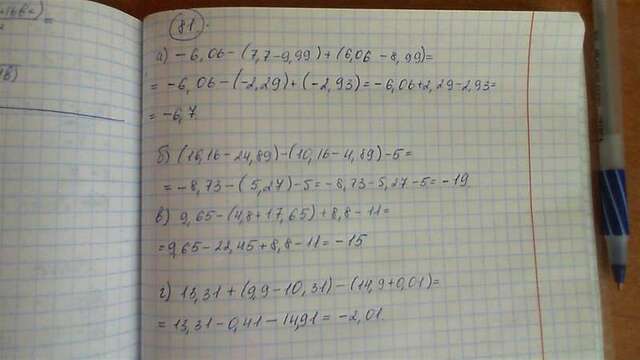 81.
а) -6,06-(7,7-9,99)+(6,06-8,99)=
= -6,06-(-2,29)+(-2,93)=-6,06+2,29-2,93=
= -6,7.
б) (16,16-24,89)-(10,16-4,89)-5=
= -8,73-(5,27)-5=-8,73-5,27-5=-19
в) 9,65-(4,8+17,65)+8,8-11=
=9,65-22,45+8,8-11=-15
г) 13,31+(9,9-10,31)-(14,9+0,01)=
= 13,31-0,41-14,91=-2,01.